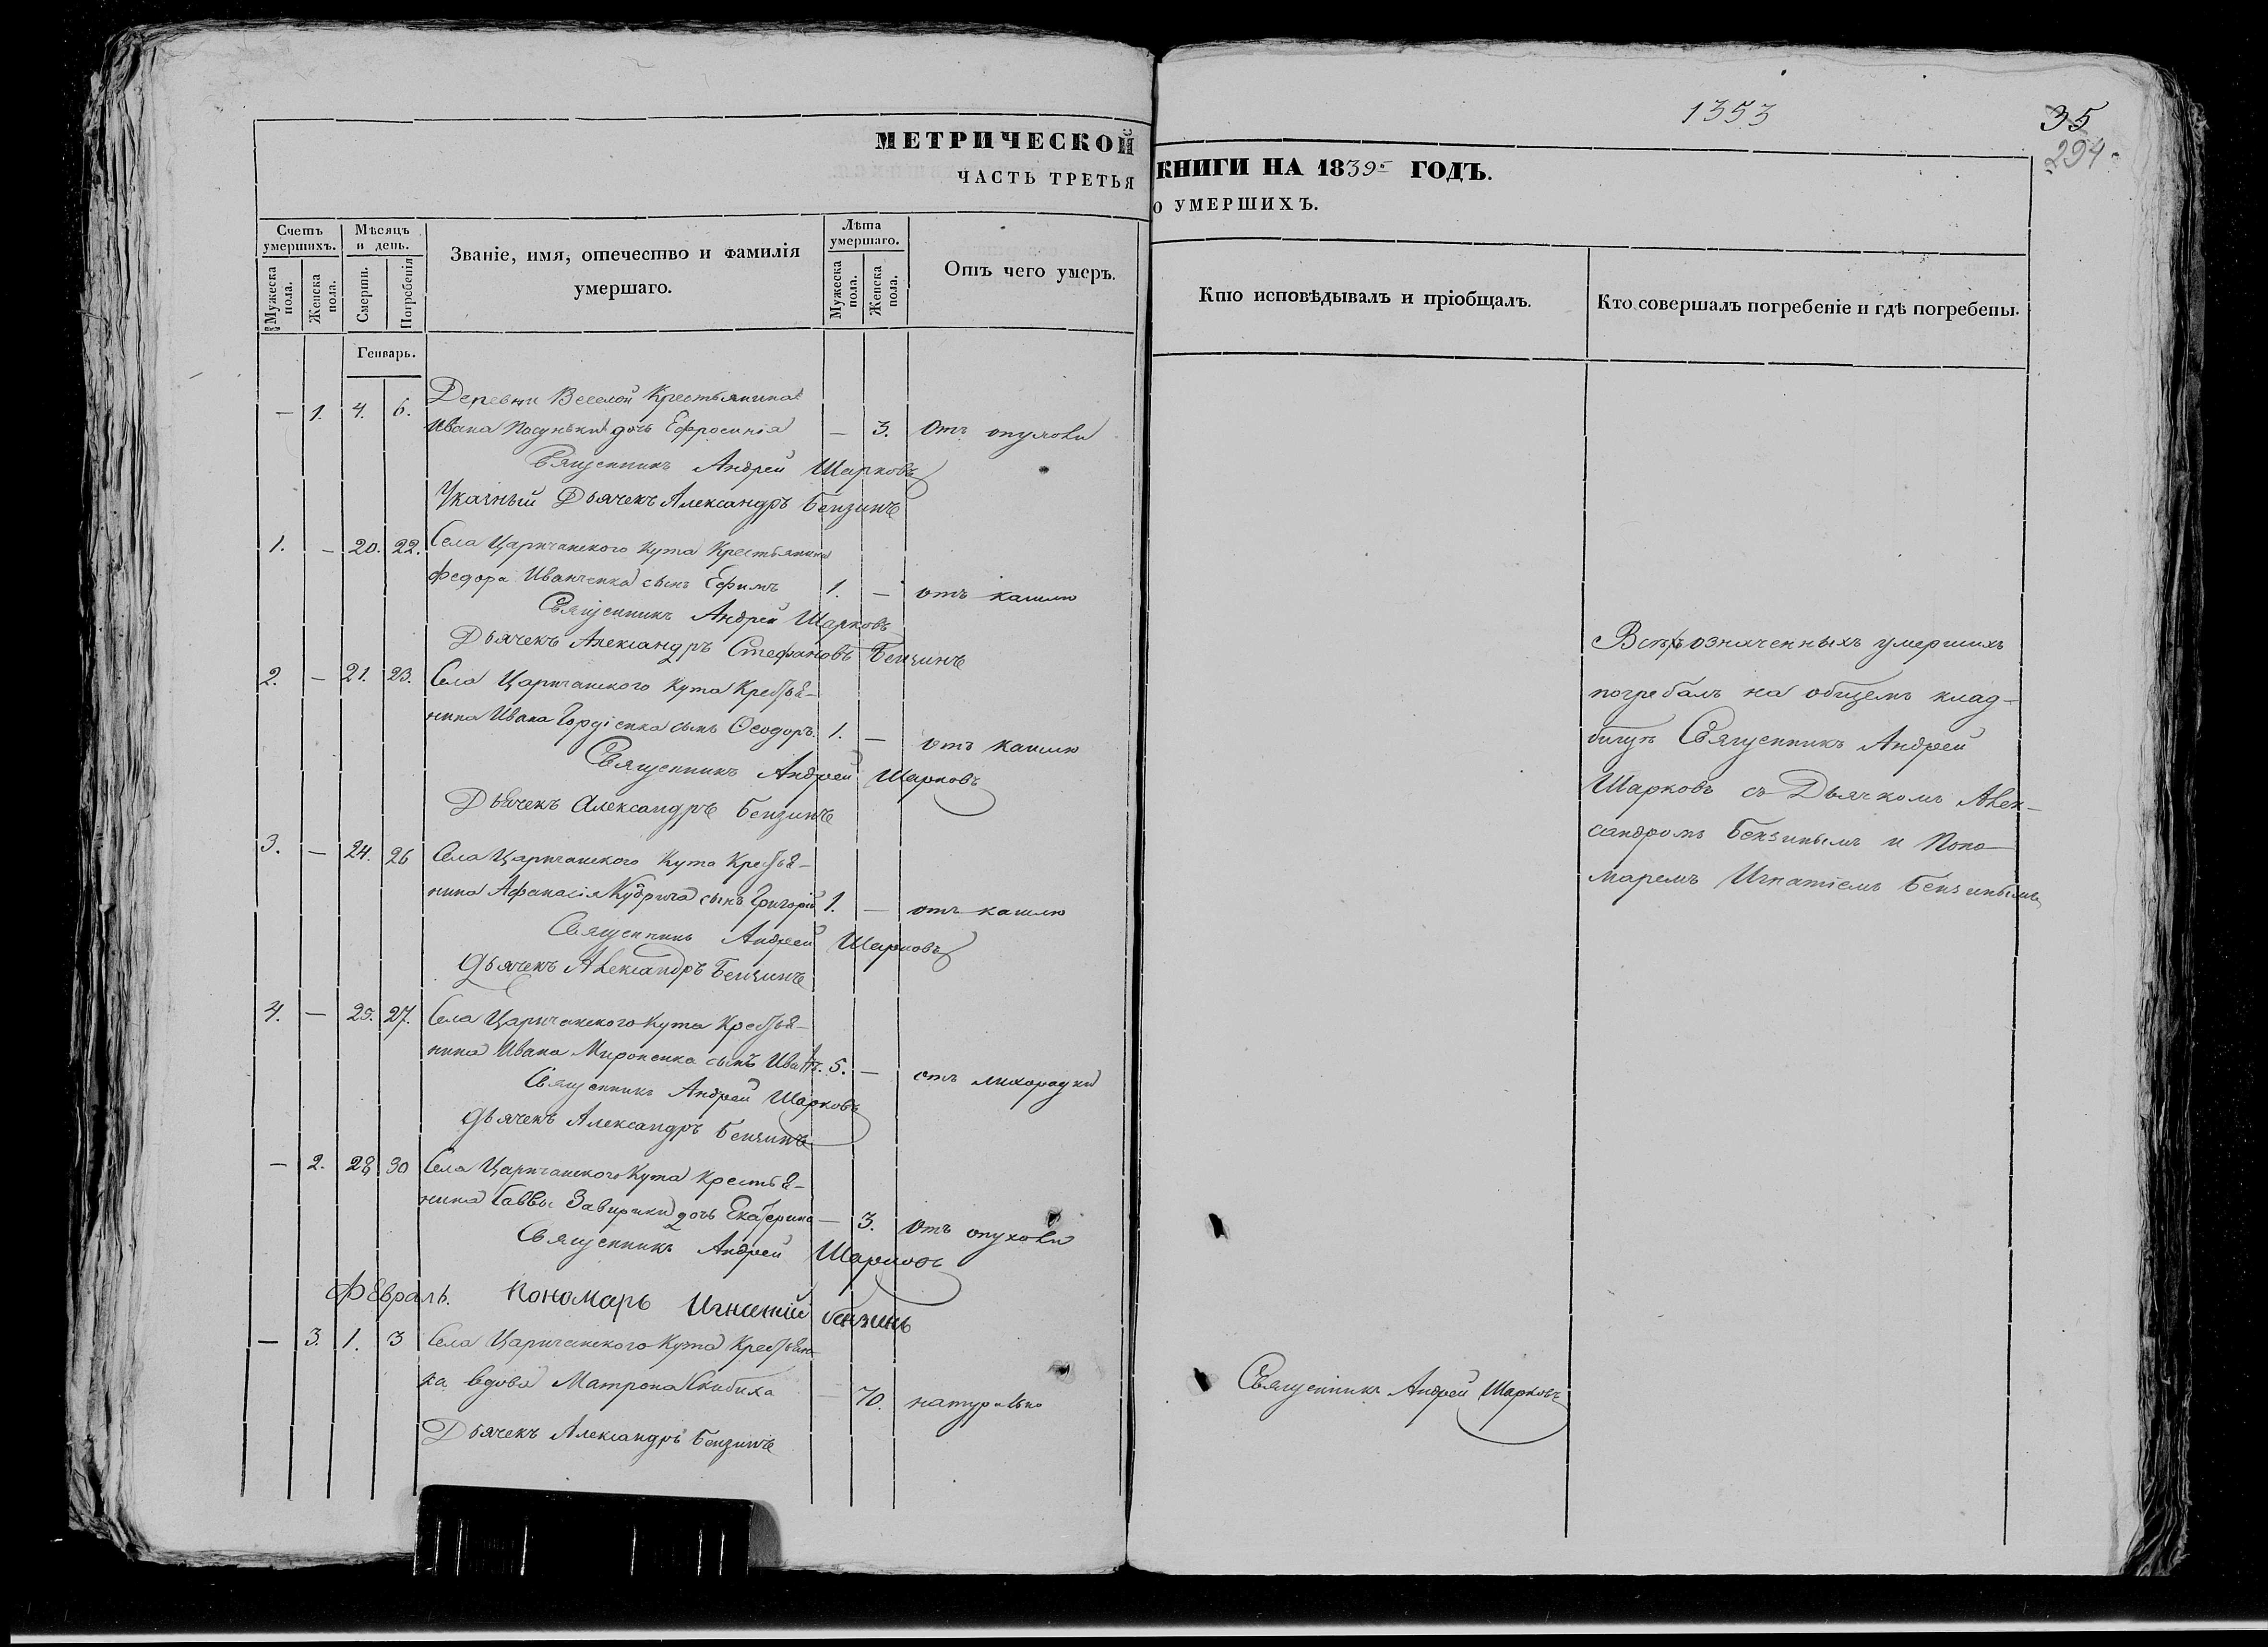 1353
35
294.
МЕТРИЧЕСКОЙ КНИГИ НА 1839й ГОДЪ.
ЧАСТЬ ТРЕТЬЯ О УМЕРШИХЪ.
Счетъ умершихъ.
Мѣсяцъ и день.
Званіе, имя, отечество и фамилія умершаго.
Лѣта умершаго.
Отъ чего умеръ.
Кто исповѣдывалъ и пріобщалъ.
Кто совершалъ погребеніе и гдѣ погребены.
Мужеска пола.
Женска пола.
Смерти.
Погребенія
Мужеска пола.
Женска пола.
Генварь.
— 1. 4. 6. Деревни Веселой Крестьянина
Ивана дочь Ефросинія — 3. Отъ опухоли
Священникъ Андрей Шарковъ
Указный Дьячекъ Александръ Бензинъ
1. — 20. 22. Села Царичанского Кута Крестьянина
Федора Иванченка сынъ Ефимъ 1. — отъ кашлю
Священникъ Андрей Шарковъ
Дьячекъ Александръ Стефановъ Бензинъ
2. — 21. 23. Села Царичанского Кута Крестья-
нина Ивана Гордіенка сынъ Ѳеодоръ. 1. — отъ кашлю
Священникъ Андрей Шарковъ
Дьячекъ Александръ Бензинъ
3. — 24. 26 Села Царичанского Кута Крестья-
нина Афанасія Кудрича сынъ Григорій 1. — отъ кашлю
Священникъ Андрей Шарковъ
Дьячекъ Александръ Бензинъ
4. — 25. 27. Села Царичанского Кута Крестья-
нина Ивана Мироненка сынъ Иванъ. 5. — отъ лихорадки
Священникъ Андрей Шарковъ
Дьячекъ Александръ Бензинъ
— 2. 28 30 Села Царичанского Кута Крестья-
нина Саввы Завирики дочь Екатерина — 3. Отъ опухоли
Священникъ Андрей Шарковъ
Февраль. Пономарь Игнатій Бензинъ
— 3. 1. 3 Села Царичанского Кута Крестьян-
ка вдова Матрона Скибиха — 70. натурально
Дьячекъ Александръ Бензинъ
Всѣхъ означенныхъ умершихъ
погребалъ на общемъ клад-
бищѣ Священникъ Андрей
Шарковъ съ Дьячкомъ Алек-
сандромъ Бензинымъ и Поно-
маремъ Игнатіемъ Бензинымъ
Священникъ Андрей Шарковъ